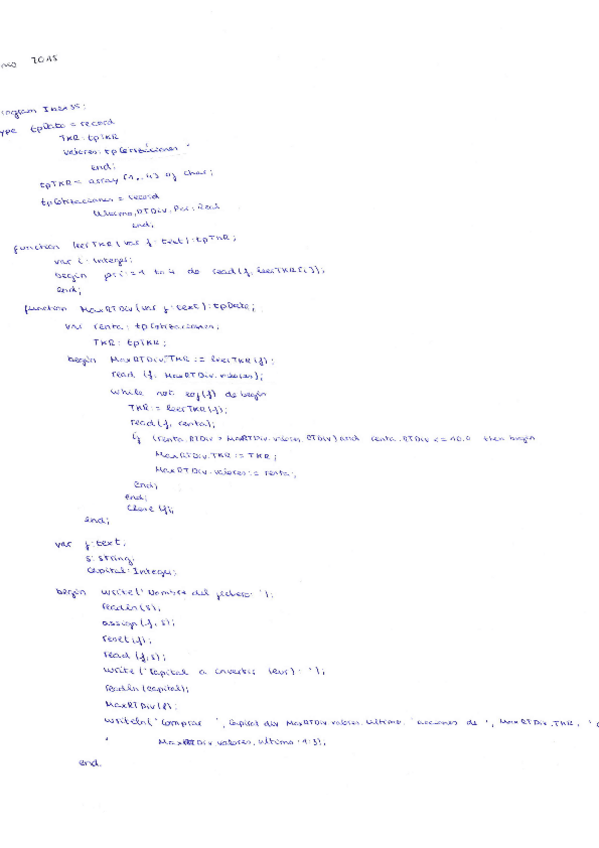 2015
type tpDato = record
TKR: tpTKR
valores: tpCotizaciones
end;
tpTKR = array [1..4] of char;
tpCotizaciones = record
Ultimo, RTDiv, Per: Real
end;
function leerTKR (var f: text): tpTKR;
var i: Integer;
begin for i:=1 to 4 do read(f, leerTKR[i]);
end;
function MaxRTDiv (var f: text): tpDato;
var renta: tpCotizaciones;
TKR: tpTKR;
begin MaxRTDiv.TKR := leerTKR(f);
read (f, MaxRTDiv.valores);
while not eof(f) do begin
TKR := leerTKR(f);
read(f, renta);
if (renta.RTDiv > MaxRTDiv.valores.RTDiv) and renta.RTDiv <= 10.0 then begin
MaxRTDiv.TKR := TKR;
MaxRTDiv.valores := renta;
end;
end;
close (f);
end;
var f: text;
s: string;
capital: Integer;
begin write('Nombre del fichero: ');
readln(s);
assign(f, s);
reset(f);
read (f, s);
write ('Capital a invertir (eur): ');
readln (capital);
MaxRTDiv(f);
writeln('Comprar ', Capital div MaxRTDiv.valores.Ultimo, 'acciones de ', MaxRTDiv.TKR, '
MaxRTDiv.valores.Ultimo:4:3);
end.